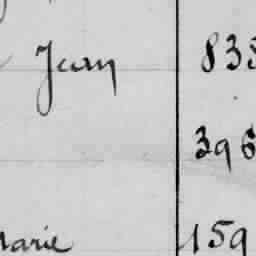 Jean 835
396
Marie 159